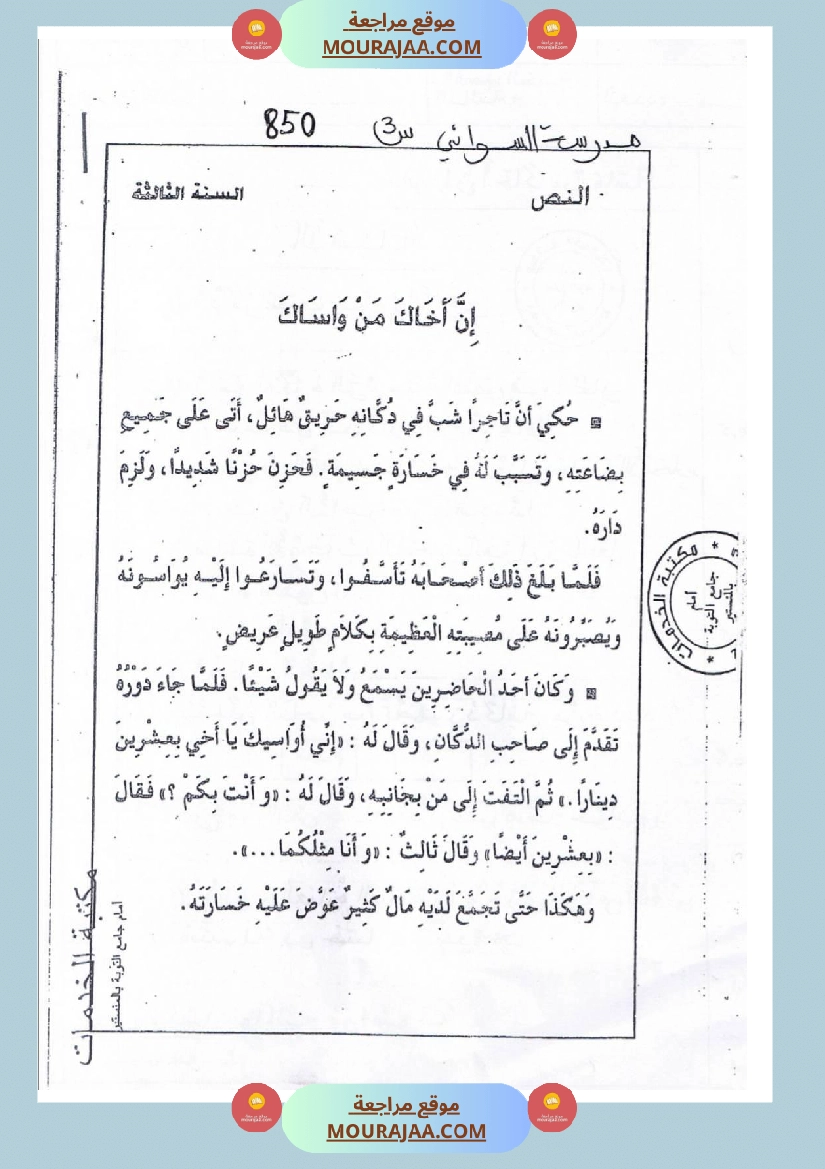 موقع مراجعة
MOURAJAA.COM
مدرسة السواني س3 850
النص السنة الثالثة
إِنَّ أَخَاكَ مَنْ وَاسَاكَ
حُكِيَ أنَّ تَاجِرًا شَبَّ فِي دُكَّانِهِ حَرِيقٌ هَائِلٌ، أَتَى عَلَى جَمِيعِ
بِضَاعَتِهِ، وَتَسَبَّبَ لَهُ فِي خَسَارَةٍ جَسِيمَةٍ. فَحَزِنَ حُزْنًا شَدِيدًا، وَلَزِمَ
دَارَهُ.
فَلَمَّا بَلَغَ ذَلِكَ أصْحَابَهُ تَأَسَّفُوا، وَتَسَارَعُوا إلَيْهِ يُوَاسُونَهُ
وَيُصَبِّرُونَهُ عَلَى مُصِيبَتِهِ الْعَظِيمَةِ بِكَلاَمٍ طَوِيلٍ عَرِيضٍ.
وَكَانَ أحَدُ الْحَاضِرِينَ يَسْمَعُ وَلاَ يَقُولُ شَيْئًا. فَلَمَّا جَاءَ دَوْرُهُ
تَقَدَّمَ إلَى صَاحِبِ الدُّكَّانِ، وَقَالَ لَهُ : «إنِّي أُوَاسِيكَ يَا أَخِي بِعِشْرِينَ
دِينَارًا.» ثُمَّ الْتَفَتَ إلَى مَنْ بِجَانِبِهِ، وَقَالَ لَهُ : «وَ أَنْتَ بِكَمْ ؟» فَقَالَ
: «بِعِشْرِينَ أَيْضًا» وَقَالَ ثَالِثٌ : «وَ أَنَا مِثْلُكُمَا...».
وَهَكَذَا حَتَّى تَجَمَّعَ لَدَيْهِ مَالٌ كَثِيرٌ عَوَّضَ عَلَيْهِ خَسَارَتَهُ.
مكتبة الخدمات
أمام جامع التوبة بالمنستير
مكتبة الخدمات
أمام
جامع التوبة
بالمنستير
موقع مراجعة
MOURAJAA.COM